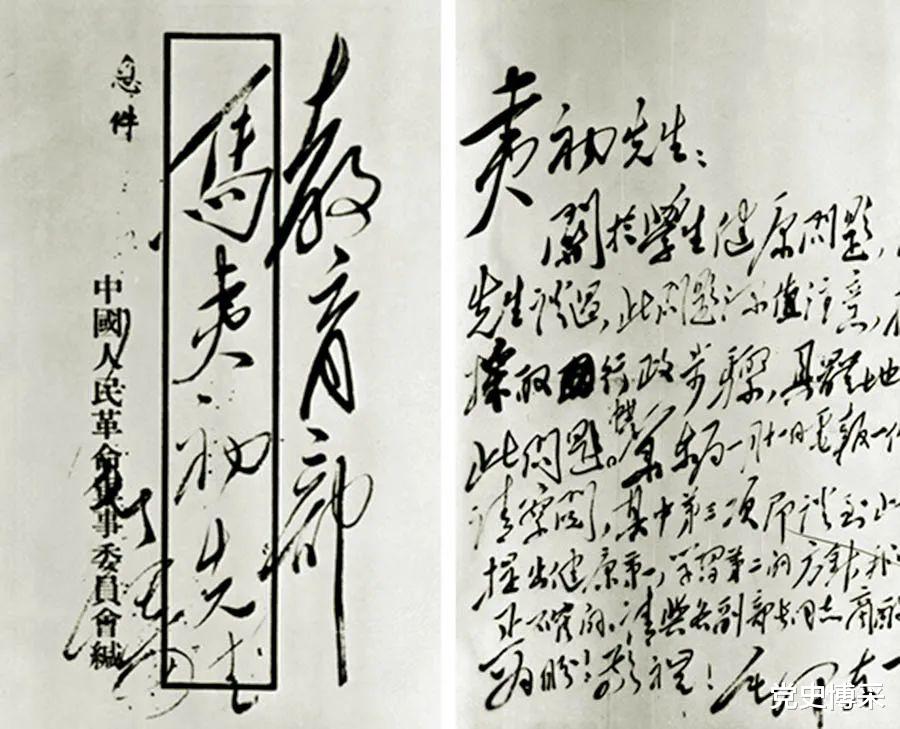 急件
教育部
馬夷初先生
中國人民革命軍事委員會緘
夷初先生：
關於學生健康問題，
先生談過，此問題深值注意，
採取行政步驟，具體地
此問題。華東局一月十一日電報一份
請察閱，其中第三項即談到此
提出健康第一，學習第二的方針，我
正確的。請與各副部長同志商酌
為盼！敬禮！毛澤東
党史博采